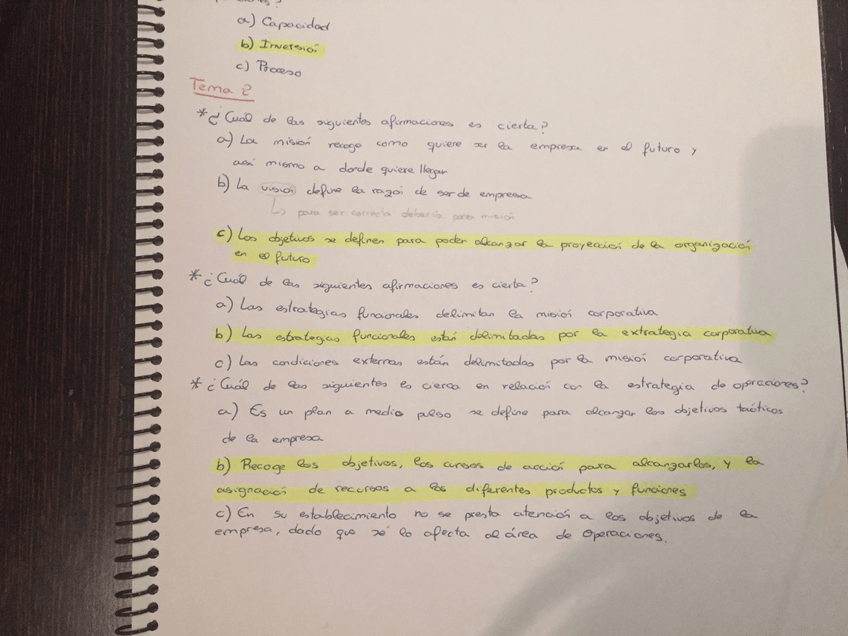 a) Capacidad
b) Inversión
c) Proceso
Tema 2
* ¿Cuál de las siguientes afirmaciones es cierta?
a) La misión recoge como quiere ser la empresa en el futuro y
así mismo a donde quiere llegar
b) La visión define la razón de ser de empresa
↳ para ser correcta debería poner misión
c) Los objetivos se definen para poder alcanzar la proyección de la organización
en el futuro
* ¿Cuál de las siguientes afirmaciones es cierta?
a) Las estrategias funcionales delimitan la misión corporativa
b) Las estrategias funcionales están delimitadas por la extrategia corporativa
c) Las condiciones externas están delimitadas por la misión corporativa
* ¿Cuál de las siguientes es cierca en relación con la estrategia de operaciones?
a) Es un plan a medio se define para alcanzar los objetivos tácticos
de la empresa
b) Recoge los objetivos, los cursos de acción para alcanzarlos, y la
asignación de recursos a los diferentes productos y funciones
c) En su establecimiento no se presta atención a los objetivos de la
empresa, dado que lo afecta al área de Operaciones.